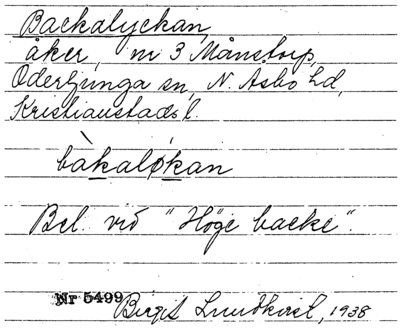 Backalyckan,
åker, nr 3 Månstorp,
Oderljunga sn, N. Åsbo hd,
Kristianstads l.
bàkaløkan
Bel. vid "Höge backe".
Nr 5499
Birgit Lundkvist, 1938